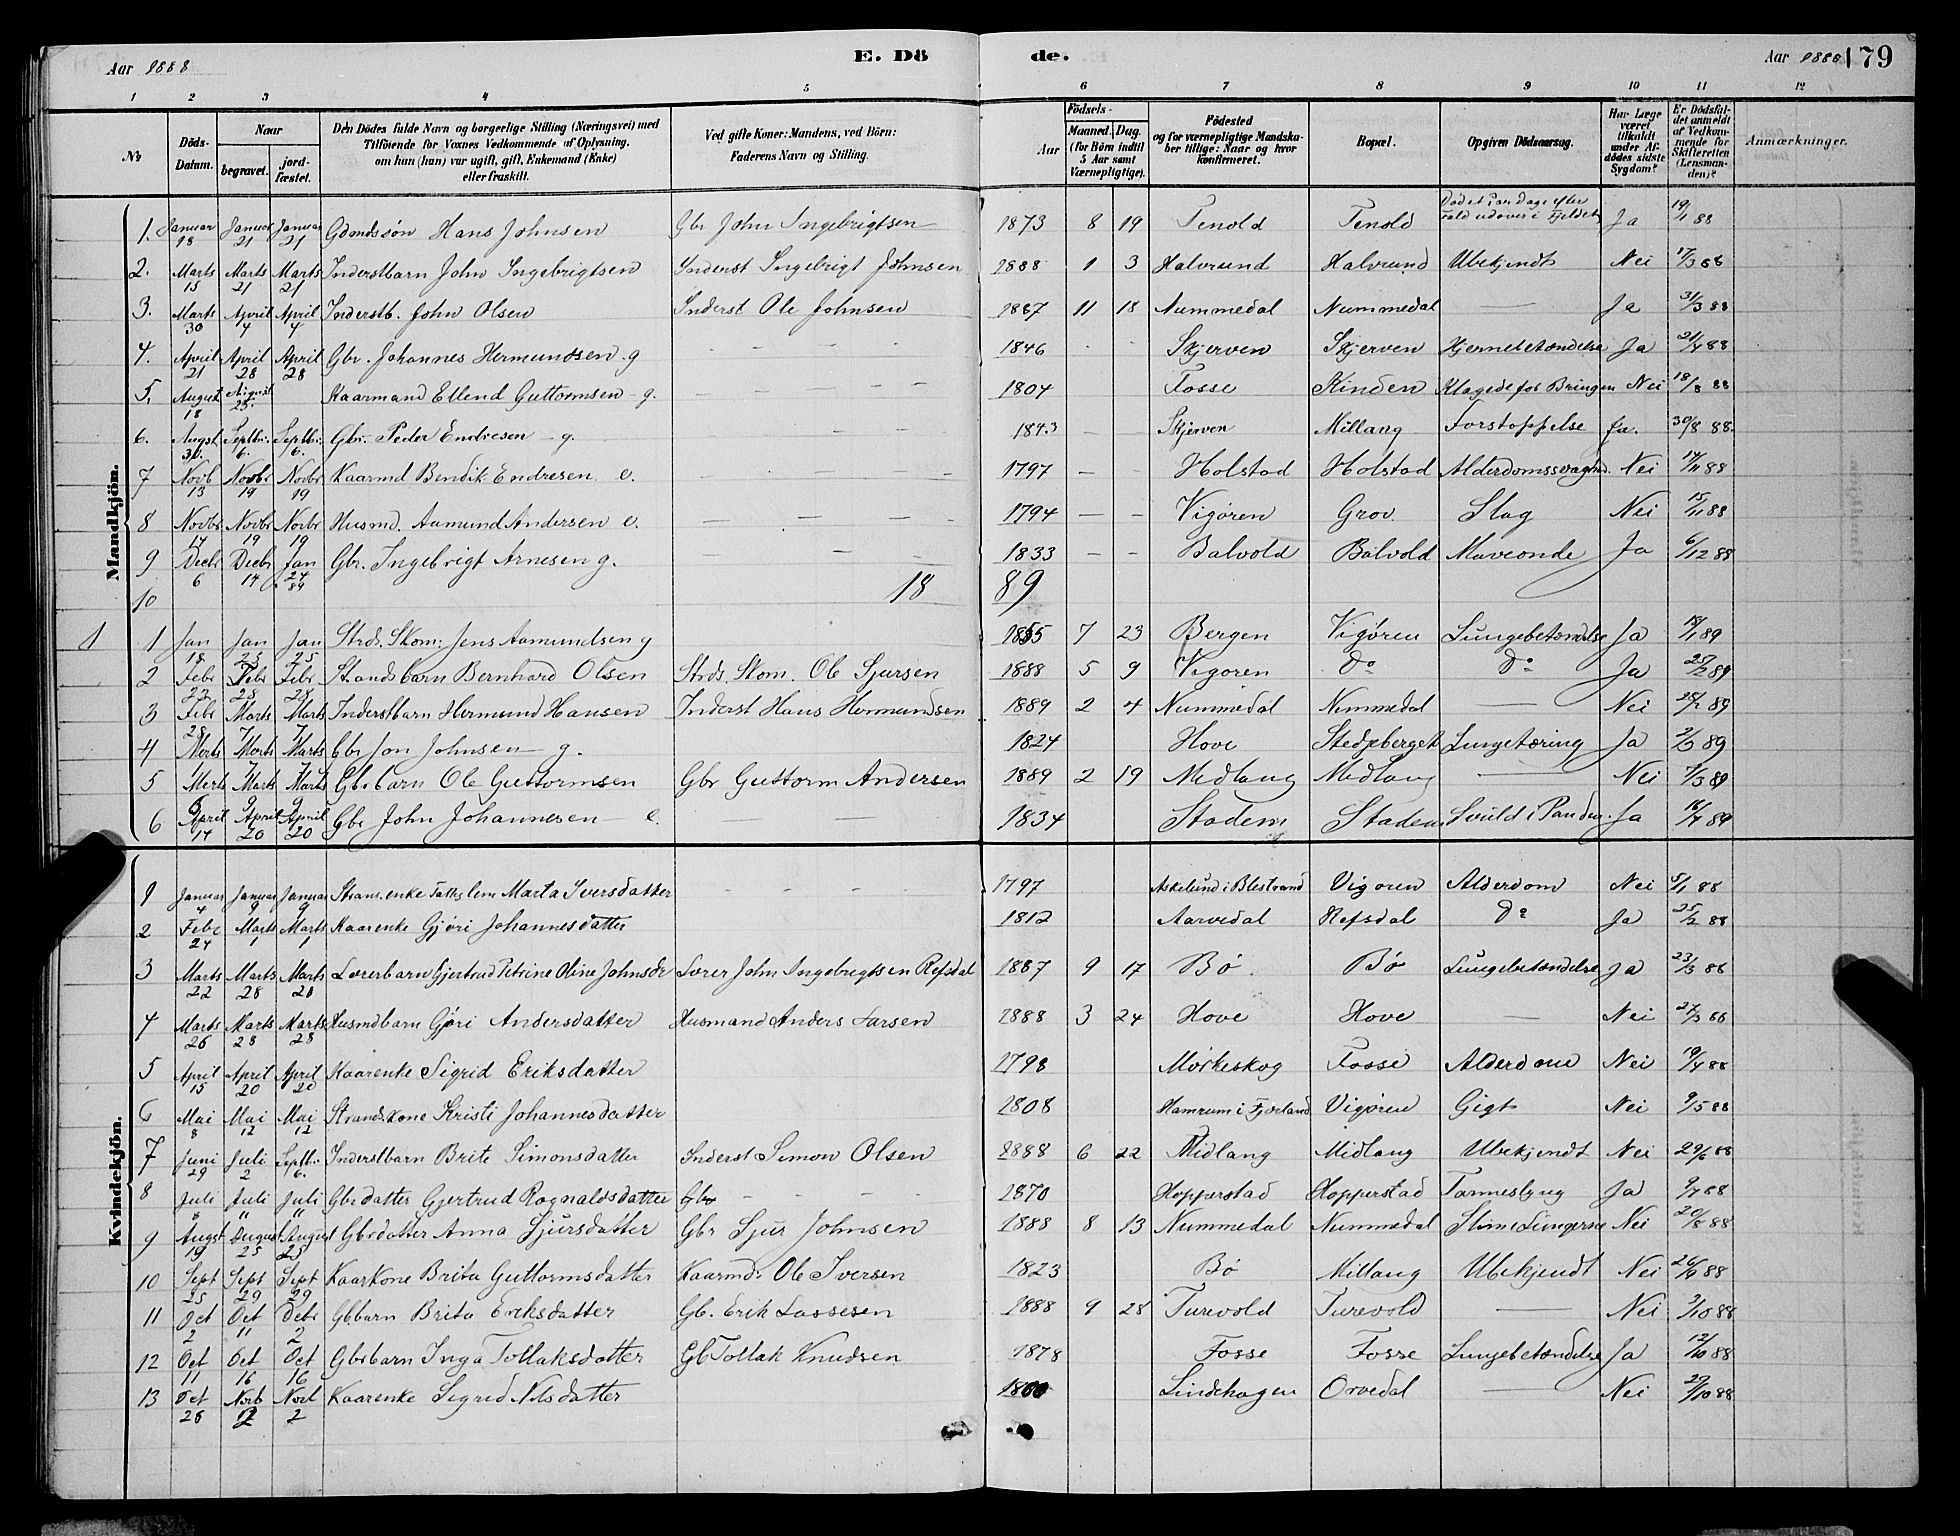 Aar 1888 E. Dö de. Aar 1888 179
1 2 3 4 5 6 7 8 9 10 11 12
№ Döds-Datum. Naar begravet. jord-fæstet. Den Dödes fulde Navn og borgerlige Stilling (Næringsvei) med Tilföiende for Voxnes Vedkommende af Oplysning, om han (hun) var ugift, gift, Enkemand (Enke) eller fraskilt. Ved gifte Koner: Mandens, ved Börn: Faderens Navn og Stilling. Födsels- Aar Maaned. Dag. (for Börn indtil 5 Aar samt Værnepligtige). Födested og for værnepligtige Mandskaber tillige: Naar og hvor konfirmeret. Bopæl. Opgiven Dödsaarsag. Har Læge været tilkaldt under Afdödes sidste Sygdom? Er Dödsfaldet anmeldt af Vedkommende for Skifteretten (Lensmanden)? Anmærkninger.
Mandkjön.
1. Januar 18 Januar 21 Januar 21 Gdmdssøn Hans Johnsen Gbr John Ingebrigtsen 1873 8 19 Tenold Tenold Dødet par Dage efter Fald udover i Fjeldet Ja 19/1 88
2. Marts 15 Marts 21 Marts 21 Inderstbarn John Ingebrigtsen Inderst Ingebrigt Johnsen 1888 1 3 Halvrund Halvrund Ubekjendt Nei 17/3 88
3. Marts 30 April 4 April 4 Inderstb. John Olsen Inderst Ole Johnsen 1887 11 18 Nummedal Nummedal — Ja 31/3 88
4. April 21 April 28 April 28 Gbr. Johannes Hermundsen g 1846 Skjerven Skjerven Hjernebetændelse Ja 21/4 88
5. August 18 August 25. Kaarmand Ellend Guttormsen g. 1804 Fosse Kinden Klagede for Bringen Nei 18/8 88
6. Augst 30. Septbr. 6. Septbr. 6. Gbr. Peder Endresen g. 1843 Skjerven Millang Forstoppelse Ja. 30/8 88.
7 Novb 13 Novbr 19 Novbr 19 Kaarmd Bendik Endresen e. 1797 — — Holstad Holstad Alderdomssvaghd. Nei 17/11 88
8 Novbr 14 Novbr 19 Novbr 19 Husmd. Aamund Andersen e. 1794 — — Vigøren Grov. Slag Nei 15/11 88
9 Decbr 6 Decbr 14 Jan 24 89 Gbr. Ingebrigt Arnesen g. 1833 — — Balvold Balvold Maveonde Ja 6/12 88
10 1889
1 1 Jan 18 Jan 25 Jan 25 Strds. Skom: Jens Aamundsen g 1855 7 23 Bergen Vigøren Lungebetændelse Ja 18/1 89
2 Febr 22 Febr 28 Febr 28 Standsbarn Bernhard Olsen Strds. Skom. Ole Sjursen 1888 5 9 Vigøren do do Ja 25/2 89
3 Febr 28 Marts 7 Marts 7 Inderstbarn Hermund Hansen Inderst Hans Hermundsen 1889 2 4 Nummedal Nummedal — Nei 28/2 89
4 Marts 1 Marts 7 Marts 7 Gbr Jon Johnsen g. 1824 Hove Stedjeberget Lungetæring Ja 2/3 89
5 Marts 6 Marts 9 Marts 9 Gbrbarn Ole Guttormsen Gbr Guttorm Andersen 1889 2 19 Midlang Midlang — Nei 7/3 89
6 April 14 April 20 April 20 Gbr John Johannesen e. 1834 Stadem Stadem Svuld i Panden. Ja 16/4 89
Kvindekjön.
1 Januar 4 Januar 9 Januar 9 Stranenke Fattglem Marta Iversdatter 1797 Askelund i Blestrand Vigøren Alderdom Nei 5/1 88
2 Febr 24 Marts 1 Marts 1 Kaarenke Gjøri Johannesdatter 1812 Aarvedal Refsdal do Ja 25/2 88
3 Marts 22 Marts 28 Marts 28 Lærerbarn Gjertrud Petrine Oline Johnsdr Lærer John Ingebrigtsen Refsdal 1887 9 17 Bø Bø Lungebetændelse Ja 23/3 88
4 Marts 26 Marts 28 Marts 28 Husmdbarn Gjøri Andersdatter Husmand Anders Larsen 1888 3 24 Hove Hove — Nei 27/3 88
5 April 15 April 20 April 20 Kaarenke Sigrid Eriksdatter 1798 Mørkeskog Fosse Alderdom Nei 19/4 88
6 Mai 8 Mai 12 Mai 12 Strandskone Kristi Johannesdatter 1808 Hamrum i Fjærland Vigøren Gigt Nei 9/5 88
7 Juni 29 Juli 2 Septbr. 6. Inderstbarn Brite Simonsdatter Inderst Simon Olsen 1888 6 22 Midlang Midlang Ubekjendt Nei 29/6 88
8 Juli 8 Juli 11 Juli 11 Gbrdatter Gjertrud Rognaldsdatter Gbr 1870 Hopperstad Hopperstad Tarmeslyng Ja 9/7 88
9 Augst 19 August 25 August 25 Gbrdatter Anna Sjursdatter Gbr Sjur Johnsen 1888 8 13 Nummedal Nummedal Slim i Lungerne Nei 20/8 88
10 Sept 25 Sept 29 Sept 29 Kaarkone Brita Guttormsdatter Kaarmd. Ole Iversen 1823 Bø Millang Ubekjendt Nei 26/9 88
11 Oct 2 Oct 11 Debr 2 Gbbarn Brita Eriksdatter Gb. Erik Lassesen 1888 9 28 Turevold Turevold — Nei 3/10 88
12 Oct 11 Oct 16 Oct 16 Gbrbarn Inga Tollaksdatter Gb Tollak Knudsen 1878 Fosse Fosse Lungebetændelse Ja 12/10 88
13 Oct 26 Novb 2 Novb 2 Kaarenke Sigrid Nilsdatter Lindehagen Orvedal — Nei 29/10 88